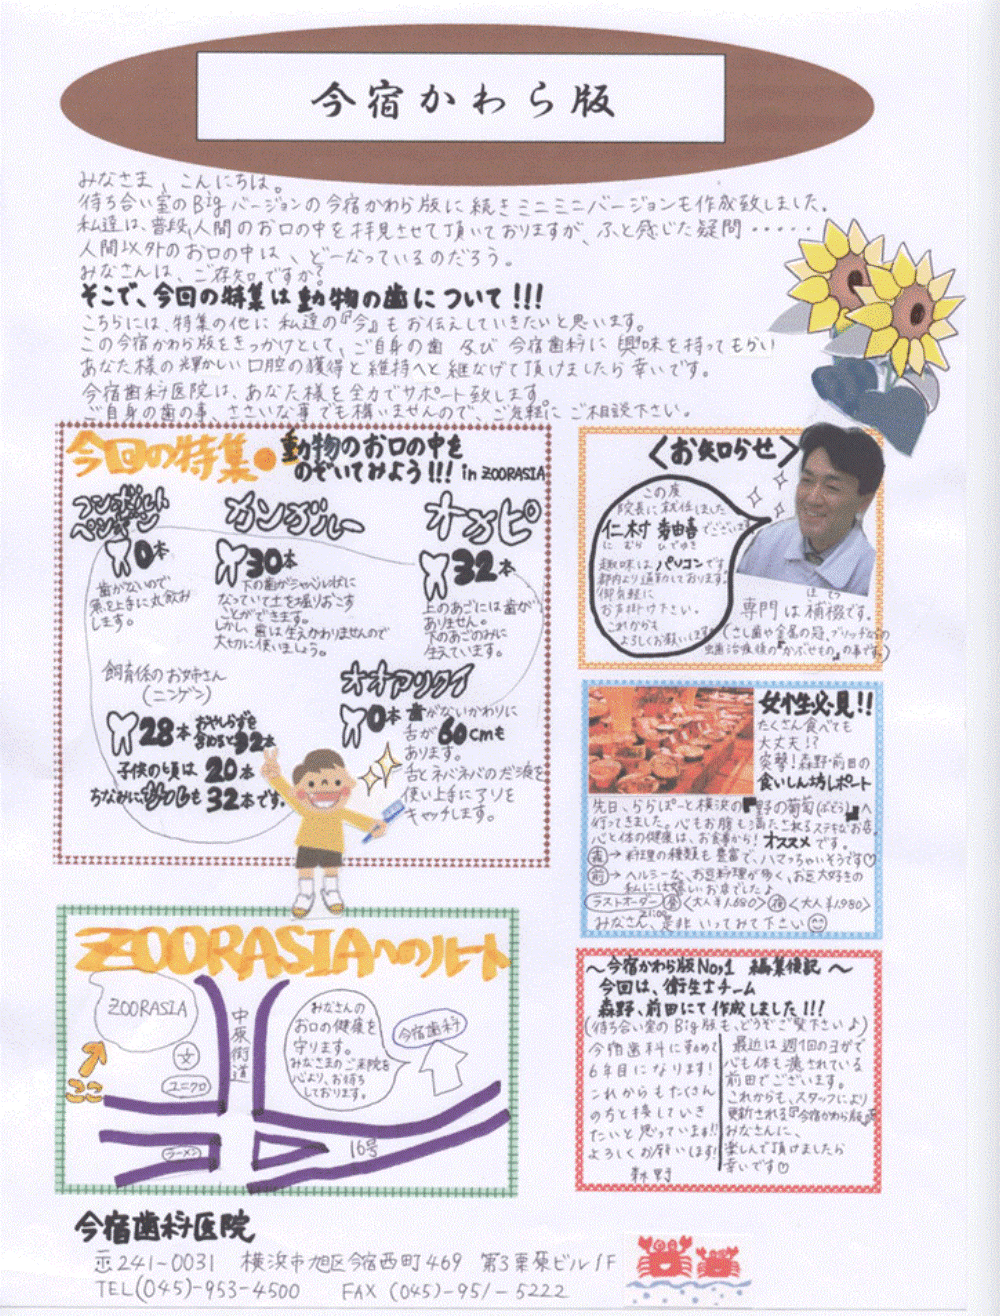 今宿かわら版
みなさま、こんにちは。
待ち合い室のBigバージョンの今宿かわら版に続きミニミニバージョンも作成致しました。
私達は、普段、人間のお口の中を拝見させて頂いておりますが、ふと感じた疑問・・・・・
人間以外のお口の中は、どーなっているのだろう。
みなさんは、ご存知ですか?
そこで、今回の特集は動物の歯について!!!
こちらには、特集の他に私達の『今』もお伝えしていきたいと思います。
この今宿かわら版をきっかけとして、ご自身の歯 及び 今宿歯科に興味を持ってもらい
あなた様の輝かしい口腔の獲得と維持へと継なげて頂けましたら幸いです。
今宿歯科医院は、あなた様を全力でサポート致します。
ご自身の歯の事、ささいな事でも構いませんので、ご気軽にご相談下さい。
今回の特集・動物のお口の中を
のぞいてみよう!!! in ZOORASIA
フンボルト
ペンギン
0本
歯がないので
魚を上手に丸飲み
します。
カンガルー
30本
下の歯がシャベル状に
なっていて土を掘りおこす
ことができます。
しかし、歯は生えかわりませんので
大切に使いましょう。
オカピ
32本
上のあごには歯が
ありません。
下のあごのみに
生えています。
飼育係のお姉さん
(ニンゲン)
28本 おやしらずを
含わると32本
子供の頃は 20本
ちなみにゴリラも 32本です。
オオアリクイ
0本 歯がないかわりに
舌が60cmも
あります。
舌とネバネバのだ液を
使い上手にアリを
キャッチします。
<お知らせ>
この度
院長に就任しました
仁村 秀由喜でございます
に むら ひでゆき
趣味はパソコンです
都内より通勤しております。
御気軽に
お声掛け下さい。
これからも
よろしくお願いします
ほ てつ
専門は補綴です。
(さし歯や金属の冠、ブリッヂなどの
虫歯治療後の『かぶせもの』の事です)
女性必見!!
たくさん食べても
大丈夫!?
突撃!森野・前田の
食いしん坊レポート
先日、ららぽーと横浜の『野の葡萄(ぶどう)』へ
行ってきました。心もお腹も満たされるステキなお店。
心と体の健康は、お食事から!オススメです。
森→料理の種類も豊富で、ハマっちゃいそうです♡
前→ヘルシーな、お豆料理が多く、お豆大好きの
私には嬉しいお店でした♪
ラストオーダー 昼<大人¥1,680> 夜<大人¥1,980>
21:00
みなさん、是非いってみて下さい☺
ZOORASIAへのルート
ZOORASIA
ここ
文
ユニクロ
ラーメン
中原街道
16号
みなさんの
お口の健康を
守ります。
みなさまのご来院を
心より、お待ち
しております。
今宿歯科
～今宿かわら版No,1 編集後記～
今回は、衛生士チーム
森野、前田にて作成しました!!!
(待ち合い室のBig版も、どうぞご覧下さい♪)
今宿歯科に勤めて
6年目になります!
これからもたくさん
の方と接していき
たいと思っています!!
よろしくお願いします!
森野
最近は週1回のヨガで
心も体も癒されている
前田でございます。
これからも、スタッフにより
更新される『今宿かわら版』を
みなさんに、
楽しんで頂けましたら
幸いです♡
今宿歯科医院
〒241-0031 横浜市旭区今宿西町469 第3栗原ビル1F
TEL(045)-953-4500 FAX (045)-951-5222